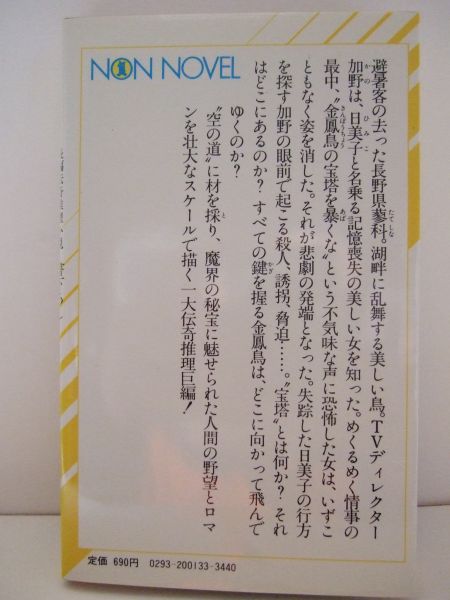 NON NOVEL
避暑客の去った長野県蓼科。湖畔に乱舞する美しい鳥。TVディレクター
加野は、日美子と名乗る記憶喪失の美しい女を知った。めくるめく情事の
最中、〝金鳳鳥の宝塔を暴くな〟という不気味な声に恐怖した女は、いずこ
ともなく姿を消した。それが悲劇の発端となった。失踪した日美子の行方
を探す加野の眼前で起こる殺人、誘拐、脅迫……。〝宝塔〟とは何か? それ
はどこにあるのか? すべての鍵を握る金鳳鳥は、どこに向かって飛んで
ゆくのか?
〝空の道〟に材を採り、魔界の秘宝に魅せられた人間の野望とロマ
ンを壮大なスケールで描く一大伝奇推理巨編!
定価 690円 0293-200133-3440